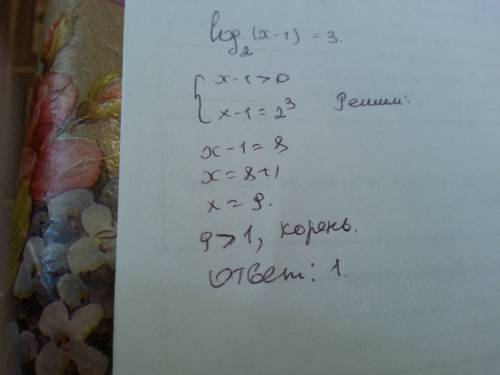 log₂(x-1) = 3.
{ x-1>0
x-1=2³ Решим:
x-1=8
x=8+1
x=9.
9>1, корень.
Ответ: 1.